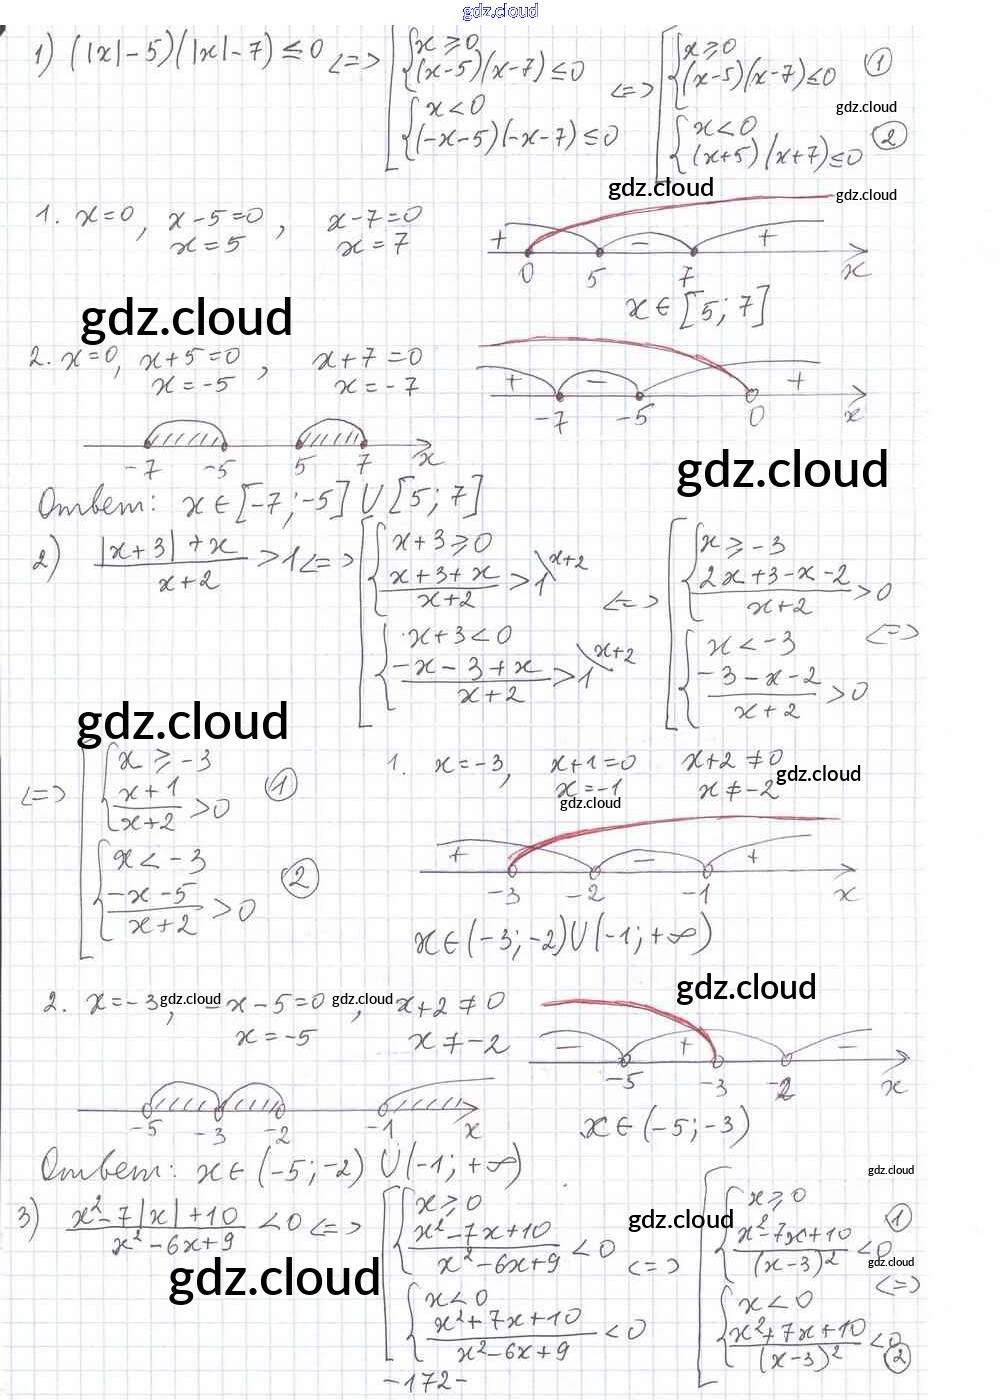 gdz.cloud
1) (|x|-5)(|x|-7)≤0 <=> [ { x≥0 (x-5)(x-7)≤0 { x<0 (-x-5)(-x-7)≤0 <=> [ { x≥0 (x-5)(x-7)≤0 ① { x<0 (x+5)(x+7)≤0 ②
gdz.cloud
gdz.cloud
gdz.cloud
1. x=0, x-5=0, x-7=0
x=5 x=7
+ - +
0 5 7 x
x∈[5;7]
gdz.cloud
2. x=0, x+5=0, x+7=0
x=-5 x=-7
+ - +
-7 -5 0 x
-7 -5 5 7 x
gdz.cloud
Ответ: x∈[-7;-5]∪[5;7]
2) (|x+3|+x)/(x+2) >1 <=> [ { x+3≥0 (x+3+x)/(x+2) >1\x+2 { x+3<0 (-x-3+x)/(x+2) >1\x+2 <=> [ { x≥-3 (2x+3-x-2)/(x+2) >0 { x<-3 (-3-x-2)/(x+2) >0 <=>
gdz.cloud
<=> [ { x≥-3 (x+1)/(x+2) >0 ① { x<-3 (-x-5)/(x+2) >0 ②
1. x=-3, x+1=0 x+2≠0
gdz.cloud
x=-1 x≠-2
gdz.cloud
+ - +
-3 -2 -1 x
x∈(-3;-2)∪(-1;+∞)
gdz.cloud
2. x=-3, gdz.cloud -x-5=0, gdz.cloud x+2≠0
x=-5 x≠-2
- + -
-5 -3 -2 x
-5 -3 -2 -1 x
x∈(-5;-3)
Ответ: x∈(-5;-2)∪(-1;+∞)
gdz.cloud
3) (x²-7|x|+10)/(x²-6x+9) <0 <=> [ { x≥0 (x²-7x+10)/(x²-6x+9) <0 { x<0 (x²+7x+10)/(x²-6x+9) <0 <=> [ { x≥0 (x²-7x+10)/(x-3)² <0 ① { x<0 (x²+7x+10)/(x-3)² <0 ② <=>
gdz.cloud
gdz.cloud
gdz.cloud
-172-